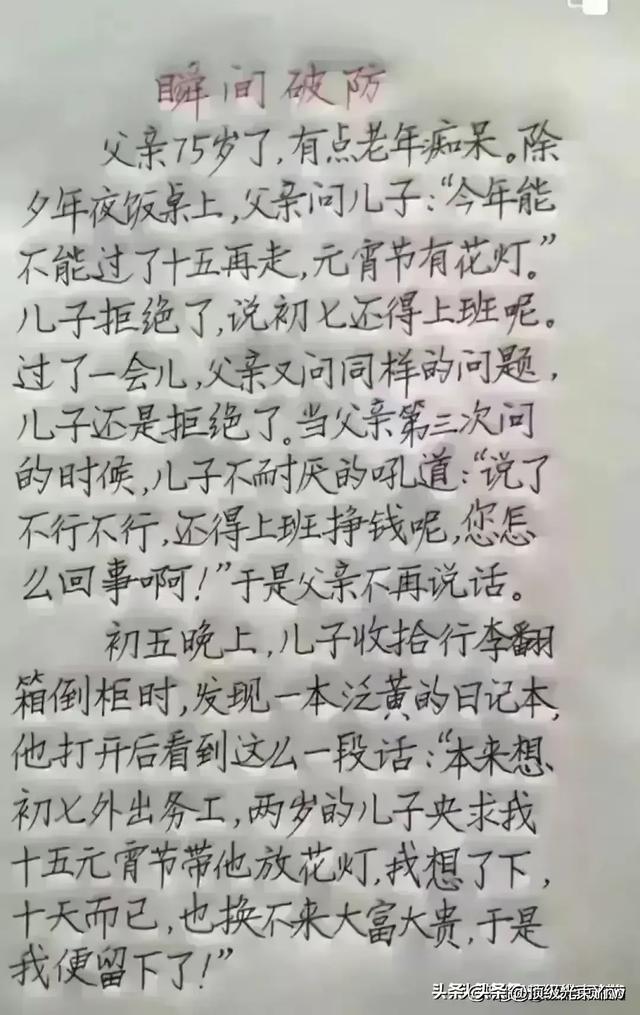 瞬间破防
父亲75岁了,有点老年痴呆。除
夕年夜饭桌上,父亲问儿子:“今年能
不能过了十五再走,元宵节有花灯。”
儿子拒绝了,说初七还得上班呢。
过了一会儿,父亲又问同样的问题,
儿子还是拒绝了。当父亲第三次问
的时候,儿子不耐厌的吼道:“说了
不行不行,还得上班挣钱呢,您怎
么回事啊!”于是父亲不再说话。
初五晚上,儿子收拾行李翻
箱倒柜时,发现一本泛黄的日记本,
他打开后看到这么一段话:“本来想、
初七外出务工,两岁的儿子央求我
十五元宵节带他放花灯,我想了下,
十天而已,也换不来大富大贵,于是
我便留下了!”